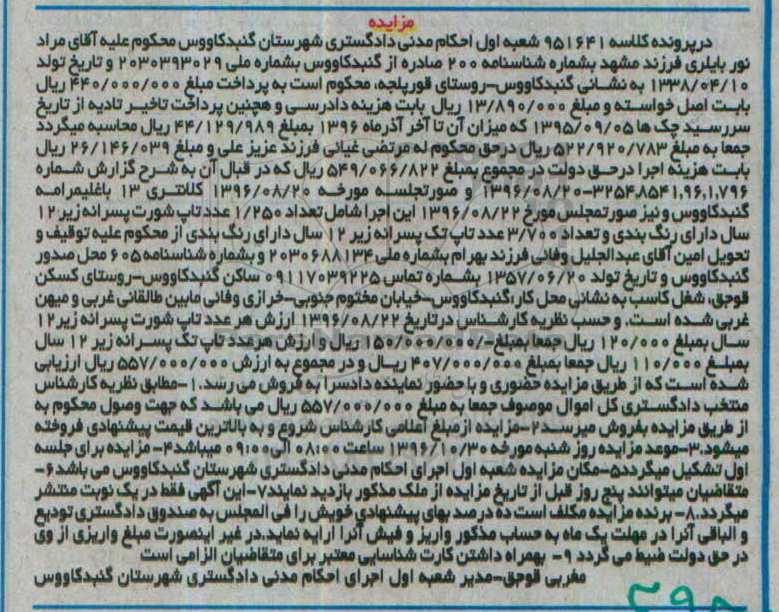 مزایده
درپرونده کلاسه ۹۵۱۶۴۱ شعبه اول احکام مدنی دادگستری شهرستان گنبدکاووس محکوم علیه آقای مراد
نور بایلری فرزند مشهد بشماره شناسنامه ۲۰۰ صادره از گنبدکاووس بشماره ملی ۲۰۳۰۳۹۳۰۲۹ و تاریخ تولد
۱۳۳۸/۰۴/۱۰ به نشانی گنبدکاووس-روستای قورپلجه، محکوم است به پرداخت مبلغ ۴۴۰/۰۰۰/۰۰۰ ریال
بابت اصل خواسته و مبلغ ۱۳/۸۹۰/۰۰۰ ریال بابت هزینه دادرسی و همچنین پرداخت تاخیر تادیه از تاریخ
سررسید چک ها ۱۳۹۵/۰۹/۰۵ که میزان آن تا آخر آذرماه ۱۳۹۶ بمبلغ ۴۴/۱۲۹/۹۸۹ ریال محاسبه میگردد
جمعا به مبلغ ۵۲۲/۹۲۰/۷۸۳ ریال درحق محکوم له مرتضی غیاثی فرزند عزیز علی و مبلغ ۲۶/۱۴۶/۰۳۹ ریال
بابت هزینه اجرا درحق دولت در مجموع بمبلغ ۵۴۹/۰۶۶/۸۲۲ ریال که در قبال آن به شرح گزارش شماره
۳۲۵۴،۸۵۴۱،۹۶،۱،۷۹۶-۱۳۹۶/۰۸/۲۰ و صورتجلسه مورخه ۱۳۹۶/۰۸/۲۰ کلانتری ۱۳ باغلیمرامه
گنبدکاووس و نیز صورتمجلس مورخ ۱۳۹۶/۰۸/۲۲ این اجرا شامل تعداد ۱/۲۵۰ عدد تاپ شورت پسرانه زیر ۱۲
سال دارای رنگ بندی و تعداد ۳/۷۰۰ عدد تاپ تک پسرانه زیر ۱۲ سال دارای رنگ بندی از محکوم علیه توقیف و
تحویل امین آقای عبدالجلیل وفائی فرزند بهرام بشماره ملی ۲۰۳۰۶۸۸۱۳۴ و بشماره شناسنامه ۶۰۵ محل صدور
گنبدکاووس و تاریخ تولد ۱۳۵۷/۰۶/۲۰ بشماره تماس ۰۹۱۱۷۰۳۹۲۲۵ ساکن گنبدکاووس-روستای کسکن
قوجق، شغل کاسب به نشانی محل کار:گنبدکاووس-خیابان مختوم جنوبی-خرازی وفائی مابین طالقانی غربی و میهن
غربی شده است. و حسب نظریه کارشناس درتاریخ ۱۳۹۶/۰۸/۲۲ ارزش هر عدد تاپ شورت پسرانه زیر ۱۲
سال بمبلغ ۱۲۰/۰۰۰ ریال جمعا بمبلغ-/۱۵۰/۰۰۰/۰۰۰ ریال و ارزش هرعدد تاپ تک پسرانه زیر ۱۲ سال
بمبلغ ۱۱۰/۰۰۰ ریال جمعا بمبلغ ۴۰۷/۰۰۰/۰۰۰ ریال و در مجموع به ارزش ۵۵۷/۰۰۰/۰۰۰ ریال ارزیابی
شده است که از طریق مزایده حضوری و با حضور نماینده دادسرا به فروش می رسد.۱-مطابق نظریه کارشناس
منتخب دادگستری کل اموال موصوف جمعا به مبلغ ۵۵۷/۰۰۰/۰۰۰ ریال می باشد که جهت وصول محکوم به
از طریق مزایده بفروش میرسد۲-مزایده ازمبلغ اعلامی کارشناس شروع و به بالاترین قیمت پیشنهادی فروخته
میشود.۳-موعد مزایده روز شنبه مورخه ۱۳۹۶/۱۰/۳۰ ساعت ۰۸:۰۰ الی ۰۹:۰۰ میباشد۴- مزایده برای جلسه
اول تشکیل میگردد۵-مکان مزایده شعبه اول اجرای احکام مدنی دادگستری شهرستان گنبدکاووس می باشد۶-
متقاضیان میتوانند پنج روز قبل از تاریخ مزایده از ملک مذکور بازدید نمایند۷-این آگهی فقط در یک نوبت منتشر
میگردد.۸- برنده مزایده مکلف است ده درصد بهای پیشنهادی خویش را فی المجلس به صندوق دادگستری تودیع
و الباقی آنرا در مهلت یک ماه به حساب مذکور واریز و فیش آنرا ارایه نماید.در غیر اینصورت مبلغ واریزی از وی
در حق دولت ضبط می گردد ۹- بهمراه داشتن کارت شناسایی معتبر برای متقاضیان الزامی است
مغربی قوجق-مدیر شعبه اول اجرای احکام مدنی دادگستری شهرستان گنبدکاووس